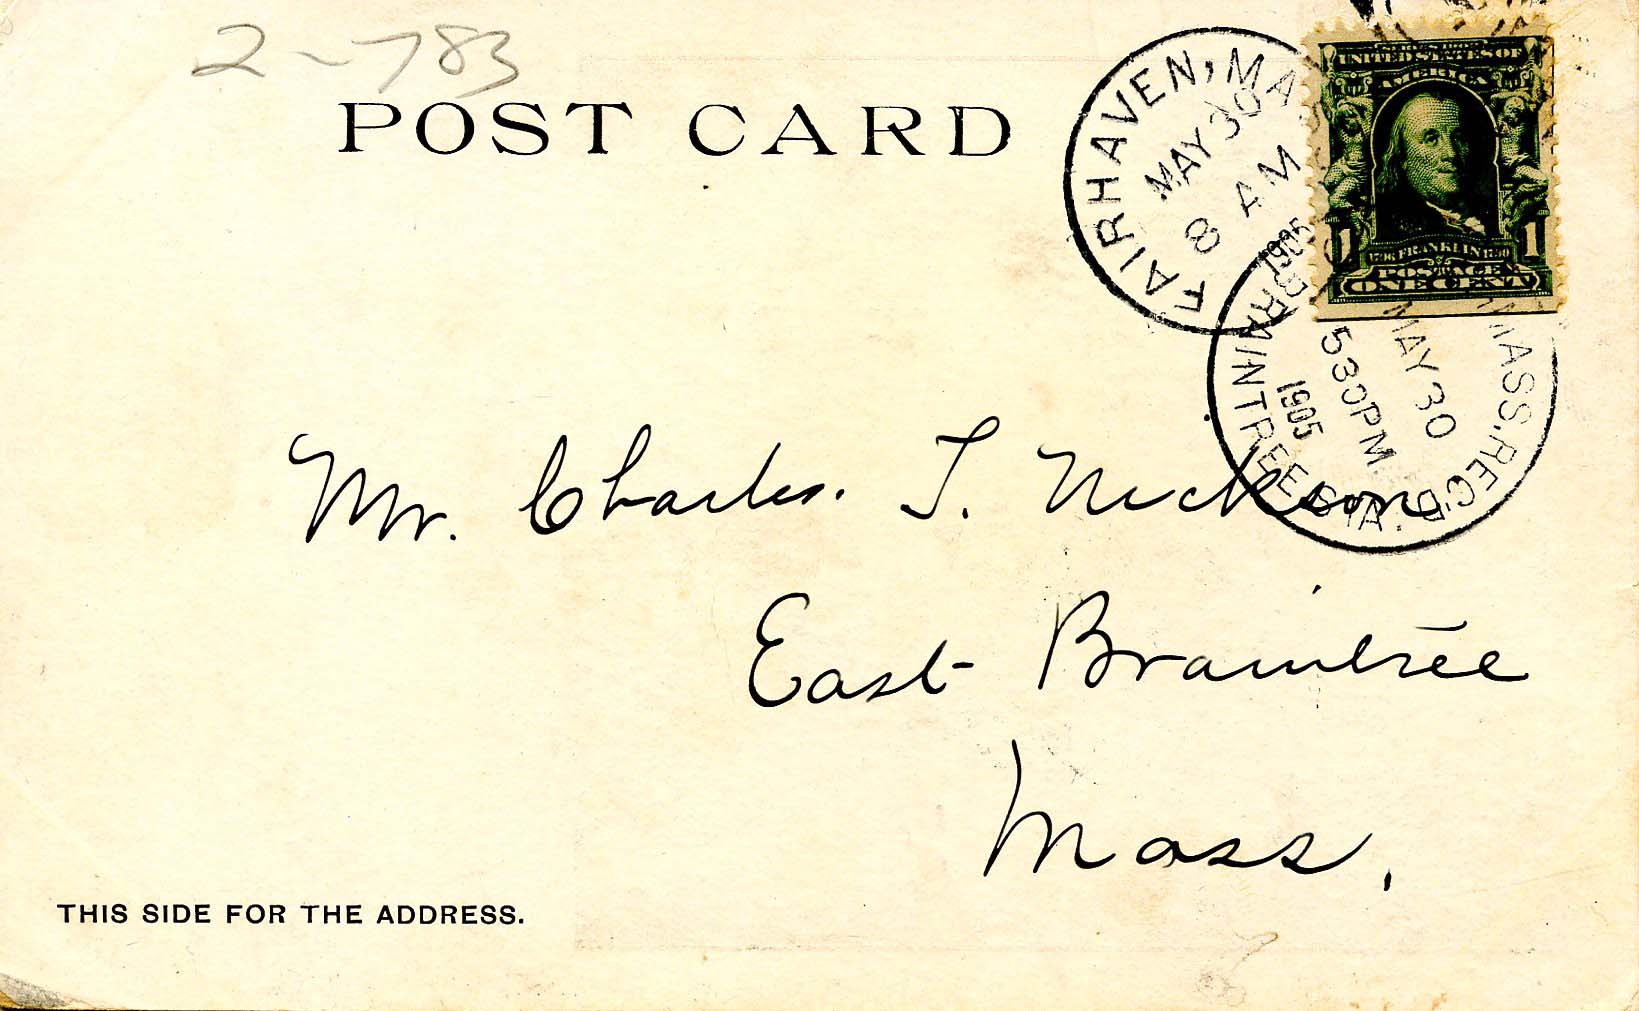 2-783
POST CARD
FAIRHAVEN, MA
MAY 30
8 AM
1905
UNITED STATES OF
AMERICA
1 FRANKLIN 1
POSTAGE
ONE CENT
BRAINTREE MASS. REC'D.
MAY 30
530PM
1905
Mr. Charles. T.
East Braintree
Mass.
THIS SIDE FOR THE ADDRESS.